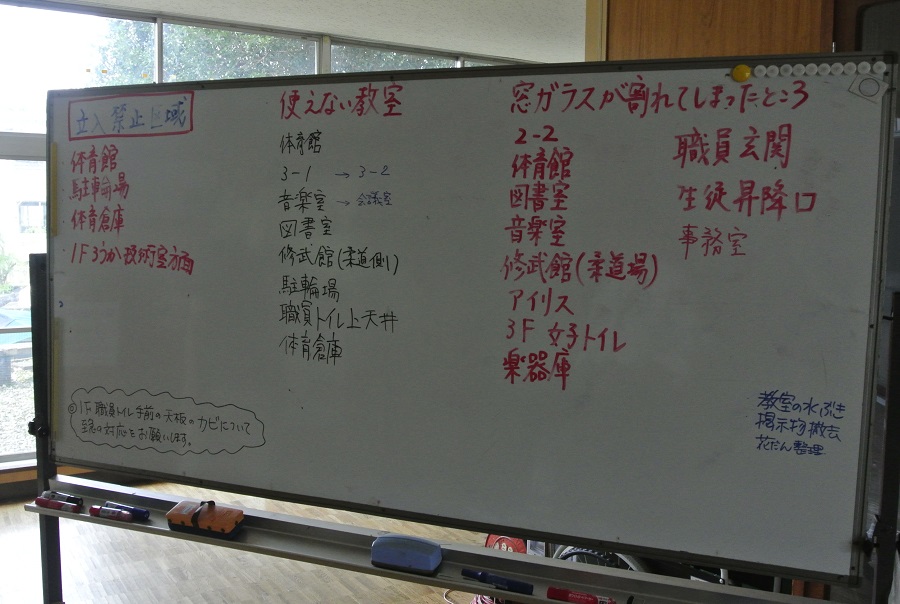 立入禁止区域
・体育館
・駐車輪場
・体育倉庫
・1Fろうか技術室方面
使えない教室
体育館
3-1 → 3-2
音楽室 → 会議室
図書室
修武館(柔道側)
駐輪場
職員トイレ上天井
体育倉庫
窓ガラスが割れてしまったところ
2-2
体育館
図書室
音楽室
修武館(柔道場)
アイリス
3F 女子トイレ
楽器庫
職員玄関
生徒昇降口
事務室
◎1F 職員トイレ手前の天板のカビについて
至急の対応をお願いします。
教室の水ぶき
掲示物撤去
花だん整理